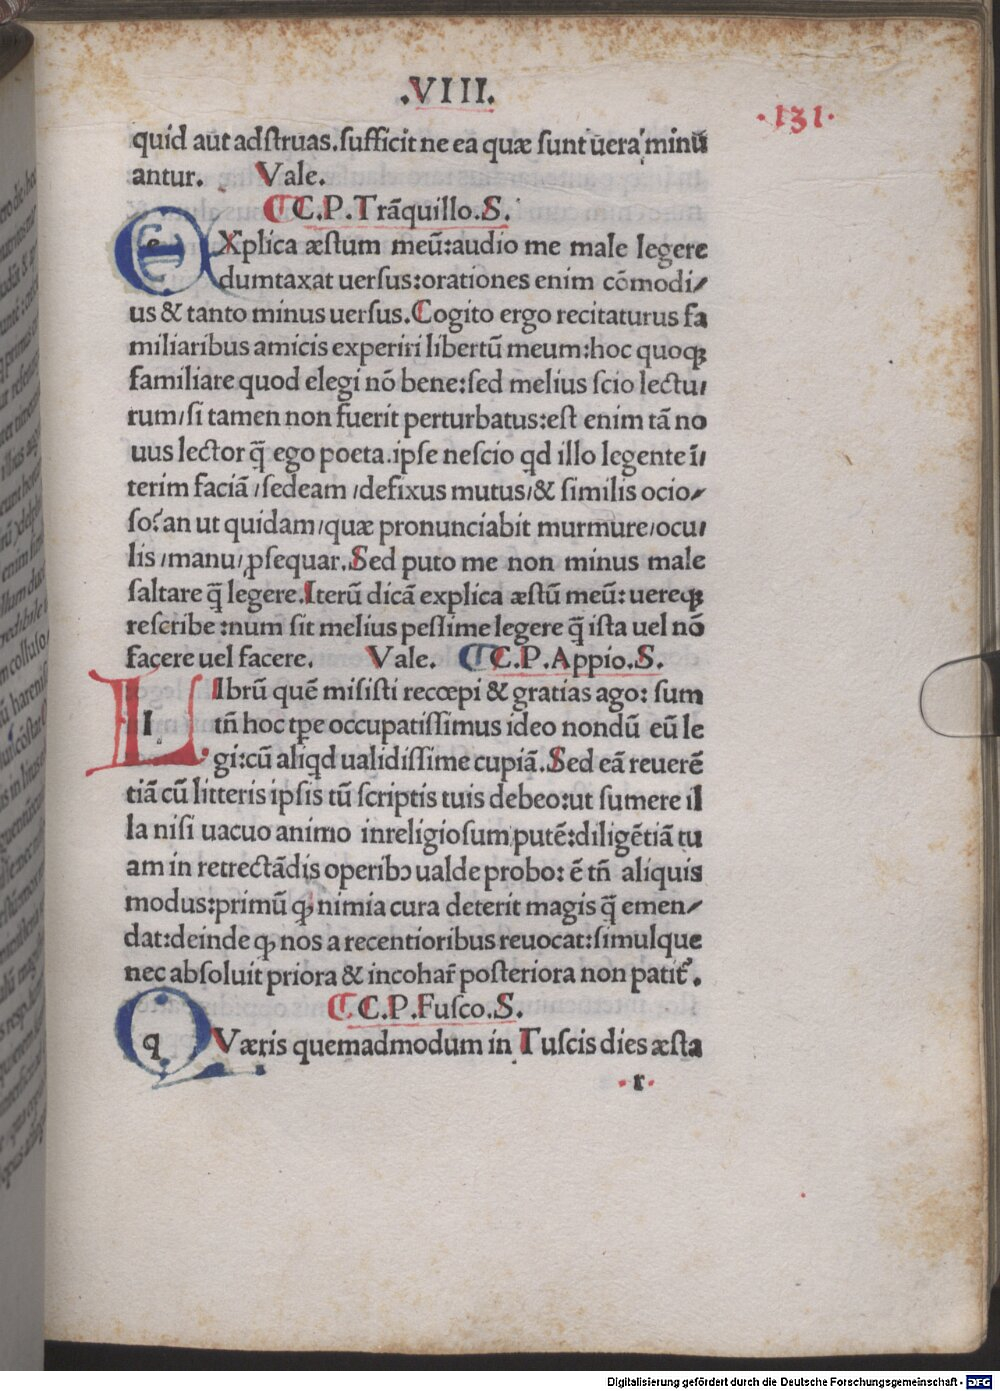 .VIII.
·131·
quid aūt adſtruas.ſufficit ne ea quæ ſunt ūera minū
antur. Vale.
C.P.Trāquillo.S.
EXplica æſtum meū:audio me male legere
dumtaxat uerſus:orationes enim cōmodi⸗
us & tanto minus uerſus.Cogito ergo recitaturus fa
miliaribus amicis experiri libertū meum:hoc quoqꝫ
familiare quod elegi nō bene:ſed melius ſcio lectu/
rum/ſi tamen non fuerit perturbatus:eſt enim tā no
uus lector q̄ ego poeta.ipſe neſcio qd illo legente ī/
terim faciā/ſedeam/defixus mutus/& ſimilis ocio⸗
ſo?an ut quidam/quæ pronunciabit murmure/ocu/
lis/manu/ꝓſequar.Sed puto me non minus male
ſaltare q̄ legere.Iterū dicā explica æſtū meū:uereqꝫ
reſcribe:num ſit melius peſſime legere q̄ iſta uel nō
facere uel facere. Vale. C.P.Appio.S.
LIbrū quē misiſti recœpi & gratias ago: ſum
tn̄ hoc tp̄e occupatiſſimus ideo nondū eū le
gi:cū aliqd ualidiſſime cupiā.Sed eā reuerē
tiā cū litteris ipſis tū ſcriptis tuis debeo:ut ſumere il
la niſi uacuo animo inreligioſum putē:diligētiā tu
am in retrectādis operibꝰ ualde probo: ē tn̄ aliquis
modus:primū ꝙ nimia cura deterit magis q̄ emen⸗
dat:deinde ꝙ nos a recentioribus reuocat:ſimulque
nec abſoluit priora & incohar̄ poſteriora non patit᷑.
C.P.Fuſco.S.
QVæris quemadmodum in Tuſcis dies æſta
·r·
Digitalisierung gefördert durch die Deutsche Forschungsgemeinschaft - DFG